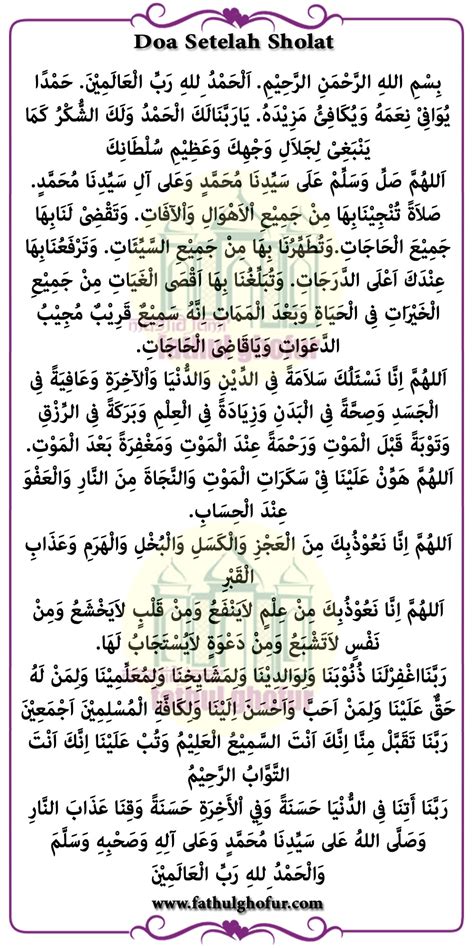 Doa Setelah Sholat
بِسْمِ اللهِ الرَّحْمَنِ الرَّحِيْمِ. اَلْحَمْدُ لِلهِ رَبِّ الْعَالَمِيْنَ. حَمْدًا
يُوَافِيْ نِعَمَهُ وَيُكَافِئُ مَزِيْدَهُ. يَارَبَّنَالَكَ الْحَمْدُ وَلَكَ الشُّكْرُ كَمَا
يَنْبَغِيْ لِجَلاَلِ وَجْهِكَ وَعَظِيْمِ سُلْطَانِكَ
اَللهُمَّ صَلِّ وَسَلِّمْ عَلَى سَيِّدِنَا مُحَمَّدٍ وَعَلى آلِ سَيِّدِنَا مُحَمَّدٍ.
صَلاَةً تُنْجِيْنَابِهَا مِنْ جَمِيْعِ الْأَهْوَالِ وَالْآفَاتِ. وَتَقْضِيْ لَنَابِهَا
جَمِيْعَ الْحَاجَاتِ.وَتُطَهِّرُنَا بِهَا مِنْ جَمِيْعِ السَّيِّئَاتِ. وَتَرْفَعُنَابِهَا
عِنْدَكَ اَعْلَى الدَّرَجَاتِ. وَتُبَلِّغُنَا بِهَا اَقْصَى الْغَيَاتِ مِنْ جَمِيْعِ
الْخَيْرَاتِ فِي الْحَيَاةِ وَبَعْدَ الْمَمَاتِ اِنَّهُ سَمِيْعٌ قَرِيْبٌ مُجِيْبُ
الدَّعَوَاتِ وَيَاقَاضِيَ الْحَاجَاتِ.
اَللهُمَّ اِنَّا نَسْئَلُكَ سَلاَمَةً فِي الدِّيْنِ وَالدُّنْيَا وَاْلآخِرَةِ وَعَافِيَةً فِي
الْجَسَدِ وَصِحَّةً فِي الْبَدَنِ وَزِيَادَةً فِي الْعِلْمِ وَبَرَكَةً فِي الرِّزْقِ
وَتَوْبَةً قَبْلَ الْمَوْتِ وَرَحْمَةً عِنْدَ الْمَوْتِ وَمَغْفِرَةً بَعْدَ الْمَوْتِ.
اَللهُمَّ هَوِّنْ عَلَيْنَا فِيْ سَكَرَاتِ الْمَوْتِ وَالنَّجَاةَ مِنَ النَّارِ وَالْعَفْوَ
عِنْدَ الْحِسَابِ.
اَللهُمَّ اِنَّا نَعُوْذُبِكَ مِنَ الْعَجْزِ وَالْكَسَلِ وَالْبُخْلِ وَالْهَرَمِ وَعَذَابِ
الْقَبْرِ
اَللهُمَّ اِنَّا نَعُوْذُبِكَ مِنْ عِلْمٍ لاَيَنْفَعُ وَمِنْ قَلْبٍ لاَيَخْشَعُ وَمِنْ
نَفْسٍ لاَتَشْبَعُ وَمِنْ دَعْوَةٍ لاَيُسْتَجَابُ لَهَا.
رَبَّنَااغْفِرْلَنَا ذُنُوْبَنَا وَلِوَالِدِيْنَا وَلِمَشَايِخِنَا وَلِمُعَلِّمِيْنَا وَلِمَنْ لَهُ
حَقٌّ عَلَيْنَا وَلِمَنْ اَحَبَّ وَاَحْسَنَ اِلَيْنَا وَلِكَافَّةِ الْمُسْلِمِيْنَ اَجْمَعِيْنَ
رَبَّنَا تَقَبَّلْ مِنَّا اِنَّكَ اَنْتَ السَّمِيْعُ الْعَلِيْمُ وَتُبْ عَلَيْنَا اِنَّكَ اَنْتَ
التَّوَّابُ الرَّحِيْمُ
رَبَّنَا أَتِنَا فِي الدُّنْيَا حَسَنَةً وَفِي اْلأَخِرَةِ حَسَنَةً وَقِنَا عَذَابَ النَّارِ
وَصَلَّى اللهُ عَلَى سَيِّدِنَا مُحَمَّدٍ وَعَلَى آلِهِ وَصَحْبِهِ وَسَلَّمَ
وَالْحَمْدُ لِلهِ رَبِّ الْعَالَمِيْنَ
www.fathulghofur.com
masjid jami'
fathul ghofur
fathul ghofur